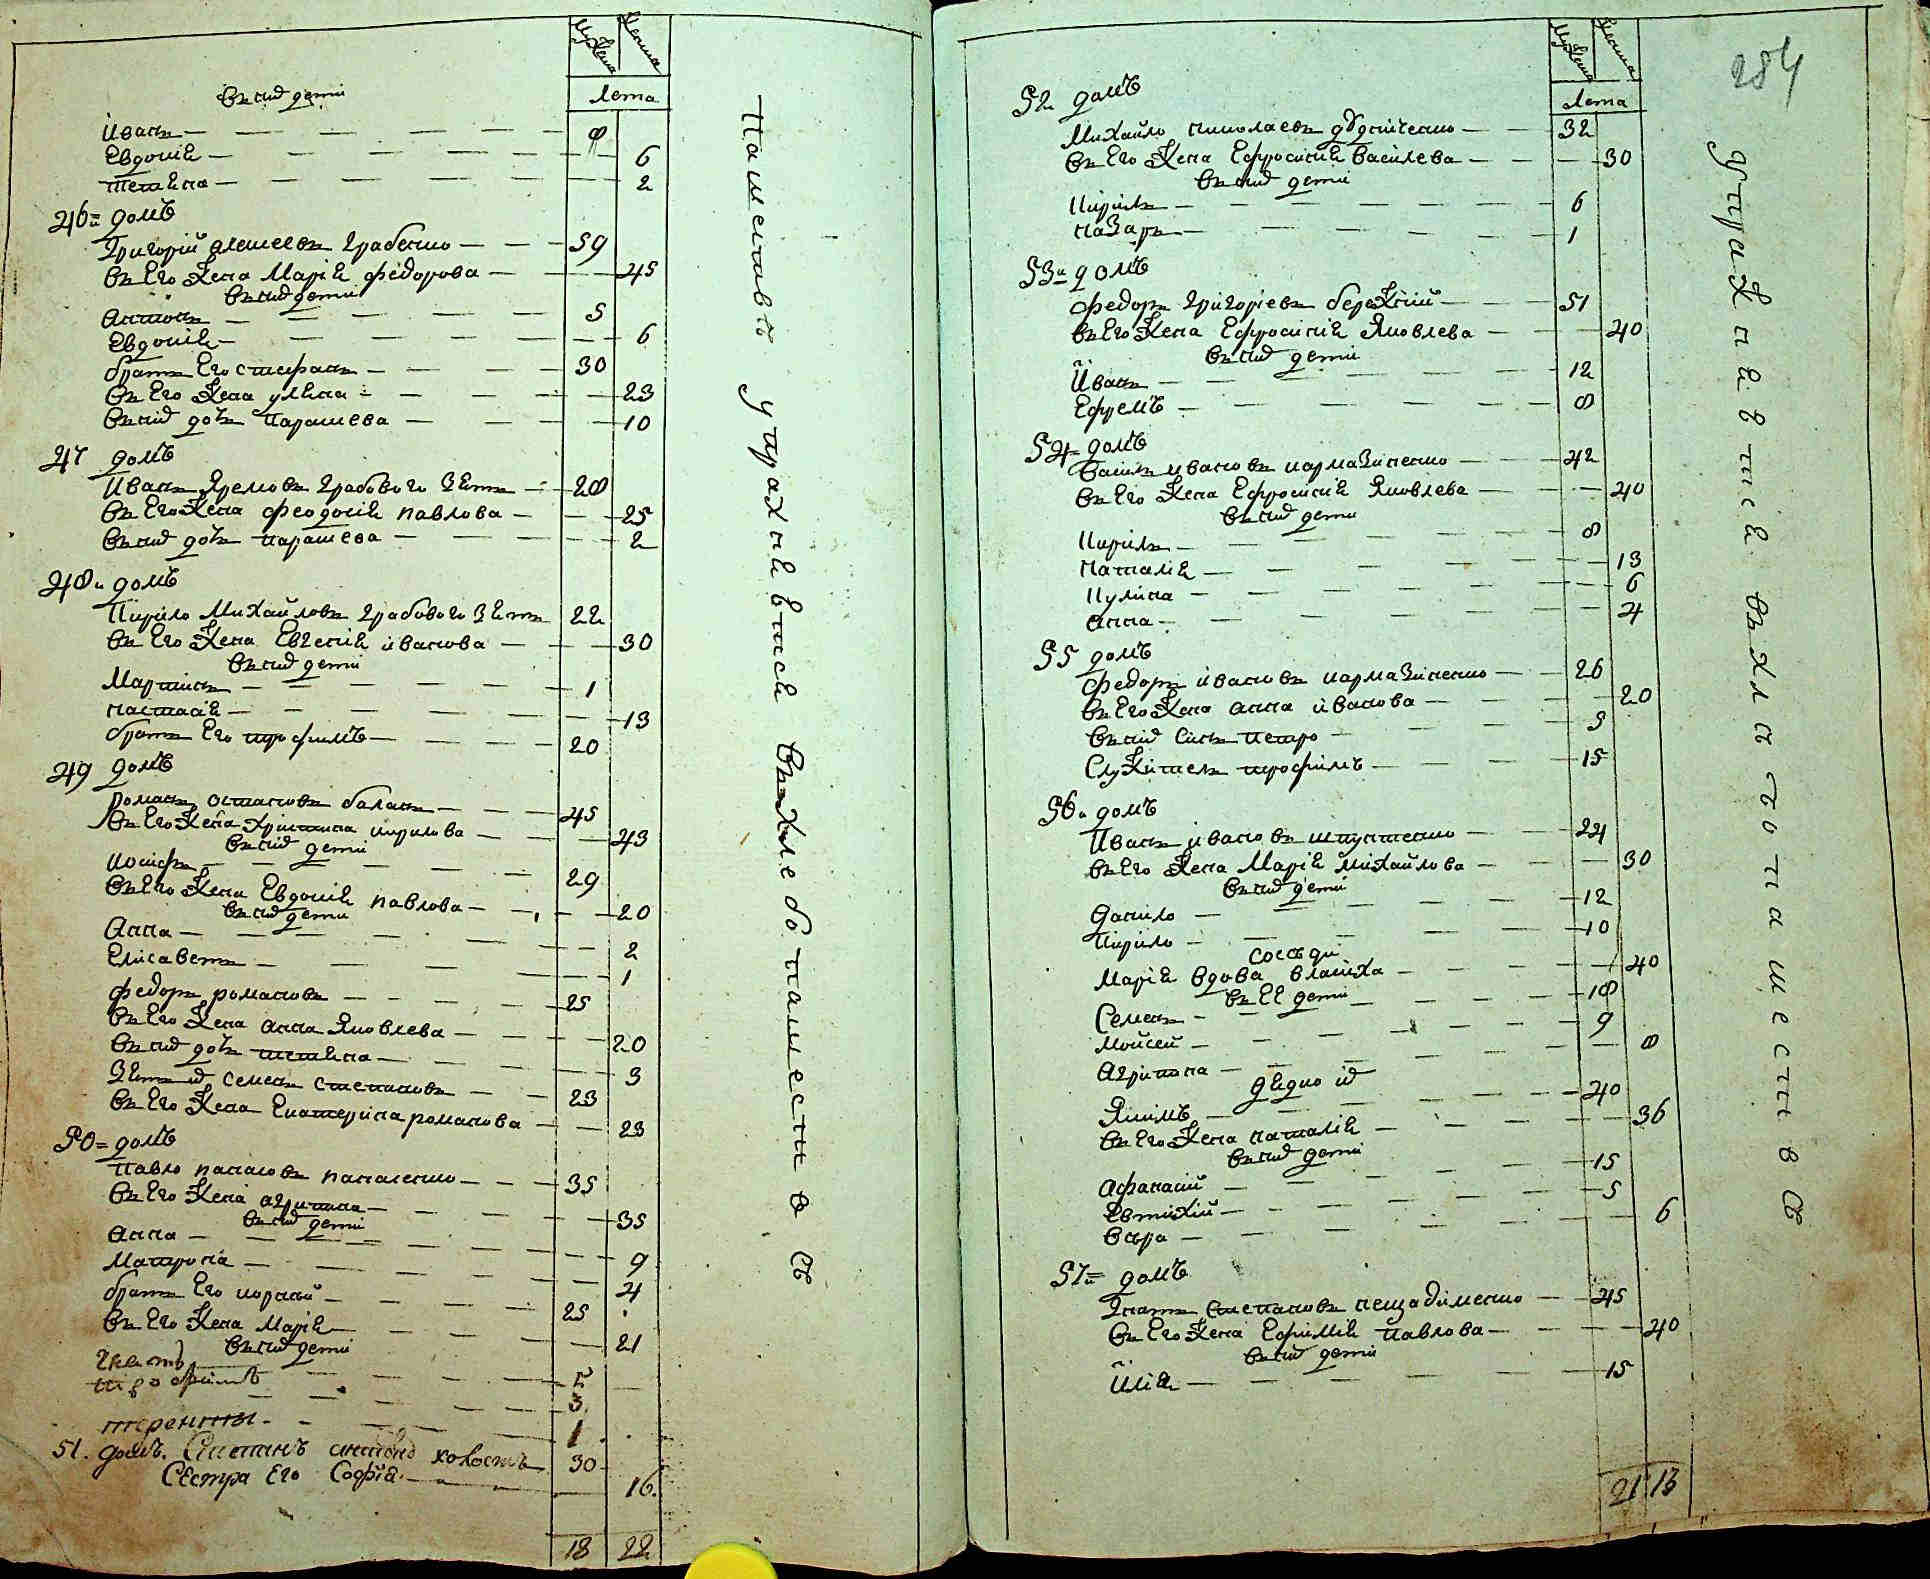 Мужеска Женска
Лета
въ них дети
Иванъ — 8
Евдокия — 6
Тетяна — 2
46 домъ
Григорий Алексеевъ Грабенко — 59
въ Его Жена Мария Федорова — 45
въ них дети
Антонъ — 5
Евдокия — 6
братъ Его Стефанъ — 30
въ Его Жена Уляна — 23
въ них дочъ Параскева — 10
47 домъ
Иванъ Яремовъ Грабового Зять — 28
въ Его Жена Феодосия Павлова — 25
въ них дочъ Параскева — 2
48 домъ
Кирило Михайловъ Грабового Зять 22
въ Его Жена Евгения Иванова — 30
въ них дети
Мартинъ — 1
Настасия — 13
братъ Его Трофимъ — 20
49 домъ
Романъ Остаповъ Балан — 45
въ Его Жена Христина Кирилова — 43
въ них дети
Иосифъ — 29
въ Его Жена Евдокия Павлова — 20
въ них дети
Анна — 2
Елисаветъ — 1
Федоръ Романовъ — 25
въ Его Жена Анна Яковлева — 20
въ них дочъ Тетяна — 3
Зять их Семенъ Степановъ — 23
въ Его Жена Екатерина Романова — 23
50 домъ
Павло Панасовъ Панасенко — 35
въ Его Жена Агрипина — 35
въ них дети
Анна — 9
Матрона — 4
братъ Его Корний — 25
въ Его Жена Мария — 21
въ них дети
Игнатъ — 5
Трофимъ — 3
Терентий — 1
51. домъ. Степанъ холостъ 30
Сестра Его София — 16.
18 22
Пашенство упражняется въ хлебопашествъ
Мужеска Женска
Лета
284
52 домъ
Михайло Николаевъ — 32
въ Его Жена Ефросиния Василева — 30
въ них дети
Кирилъ — 6
Назаръ — 1
53 домъ
Федоръ Григориевъ Бережний — 51
въ Его Жена Ефросиния Яковлева — 40
въ них дети
Иванъ — 12
Ефремъ — 8
54 домъ
Василь Ивановъ Кармазиненко — 42
въ Его Жена Ефросиния Яковлева — 40
въ них дети
Кирилъ — 8
Наталия — 13
Кулина — 6
Анна — 4
55 домъ
Федоръ Ивановъ Кармазиненко — 26
въ Его Жена Анна Иванова — 20
въ них Синъ Петро — 3
Служитель Трофимъ — 15
56 домъ
Иванъ Ивановъ — 24
въ Его Жена Мария Михайлова — 30
въ них дети
Данило — 12
Кирило — 10
Соседи
Мария вдова Власиха — 40
въ ЕЕ дети
Семенъ — 18
Мойсей — 9
Агрипина — 8
дядко их
Якимъ — 40
въ Его Жена Наталия — 36
въ них дети
Афанасий — 15
Евтихий — 5
Вера — 6
57 домъ
Игнатъ Степановъ Пещадименко — 45
въ Его Жена Ефимия Павлова — 40
въ них дети
Илия — 15
21 13
упражняется въ хлебопашествъ